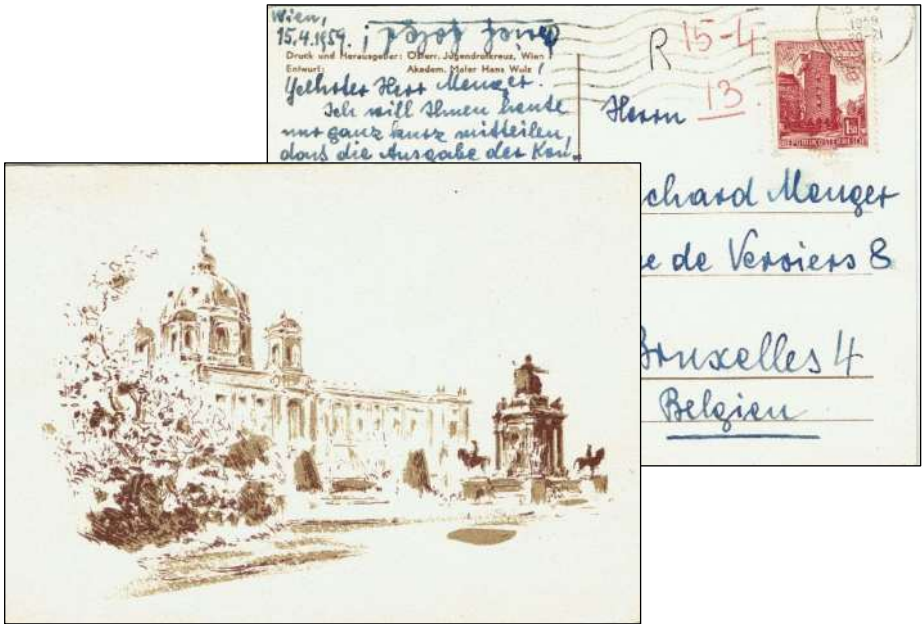 Wien,
15.4.1959.
Druck und Herausgeber: Österr. Jugendrotkreuz, Wien
Entwurf: Akadem. Maler Hans Wulz
Geehrter Herr Menger!
Ich will Ihnen heute
nur ganz kurz mitteilen,
dass die Ausgabe des Kon-
R 15-4
13.
1959
Herrn
chard Menger
e de Verviers 8
Bruxelles 4
Belgien
1.50
REPUBLIK ÖSTERREICH